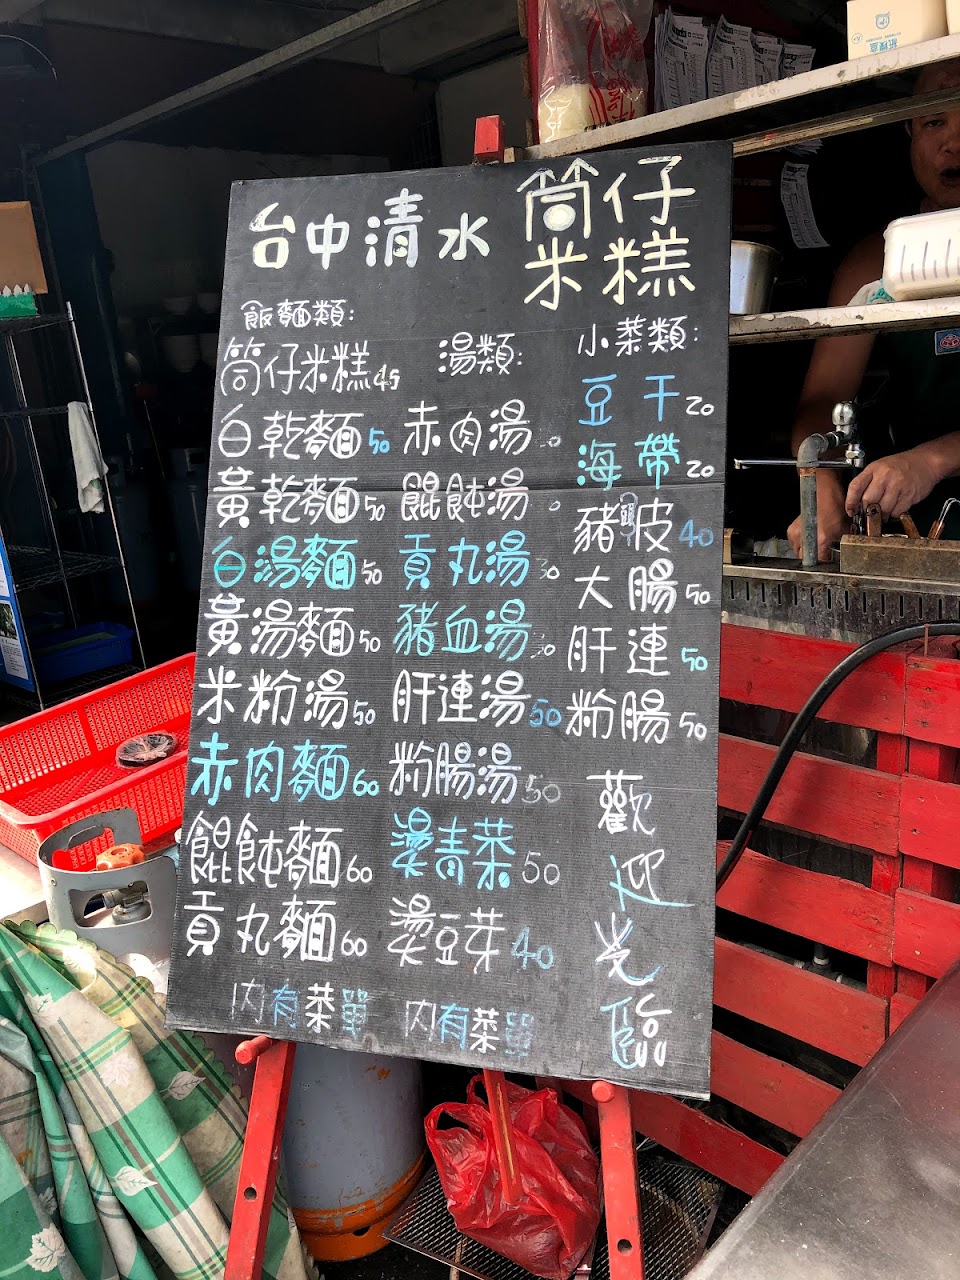 台中清水 筒仔米糕
飯麵類:
筒仔米糕45
白乾麵50
黃乾麵50
白湯麵50
黃湯麵50
米粉湯50
赤肉麵60
餛飩麵60
貢丸麵60
內有菜單
湯類:
赤肉湯
餛飩湯
貢丸湯30
豬血湯
肝連湯50
粉腸湯50
燙青菜50
燙豆芽40
內有菜單
小菜類:
豆干20
海帶20
豬頭皮40
大腸50
肝連50
粉腸50
歡迎光臨